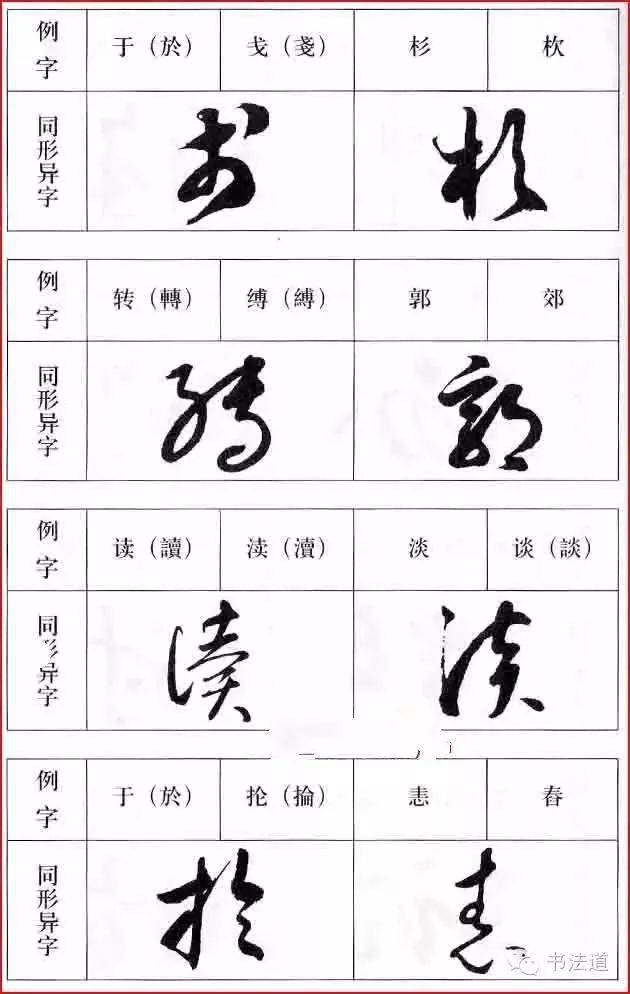 例字 于（於） 戋（戔） 杉 杴
同形异字
例字 转（轉） 缚（縛） 郭 郊
同形异字
例字 读（讀） 渎（瀆） 淡 谈（談）
同形异字
例字 于（於） 抡（掄） 恚 舂
同形异字
书法道